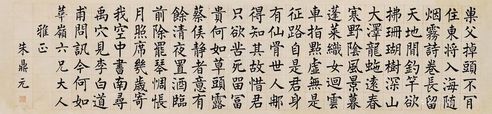 巢父掉頭不肎
住東將入海隨
烟霧詩卷長留
天地閒釣竿欲
拂珊瑚樹深山
大澤龍蛇遠春
寒野陰風景暮
蓬萊織女迴雲
車指點虛無是
征路自是君身
有仙骨世人那
得知其故惜君
只欲苦死留富
貴何如草頭露
蔡侯靜者意有
餘清夜置酒臨
前除罷琴惆悵
月照席幾歲寄
我空中書南尋
禹穴見李白道
甫問訊今何如
嶺六兄大人
雅正
朱鼎元